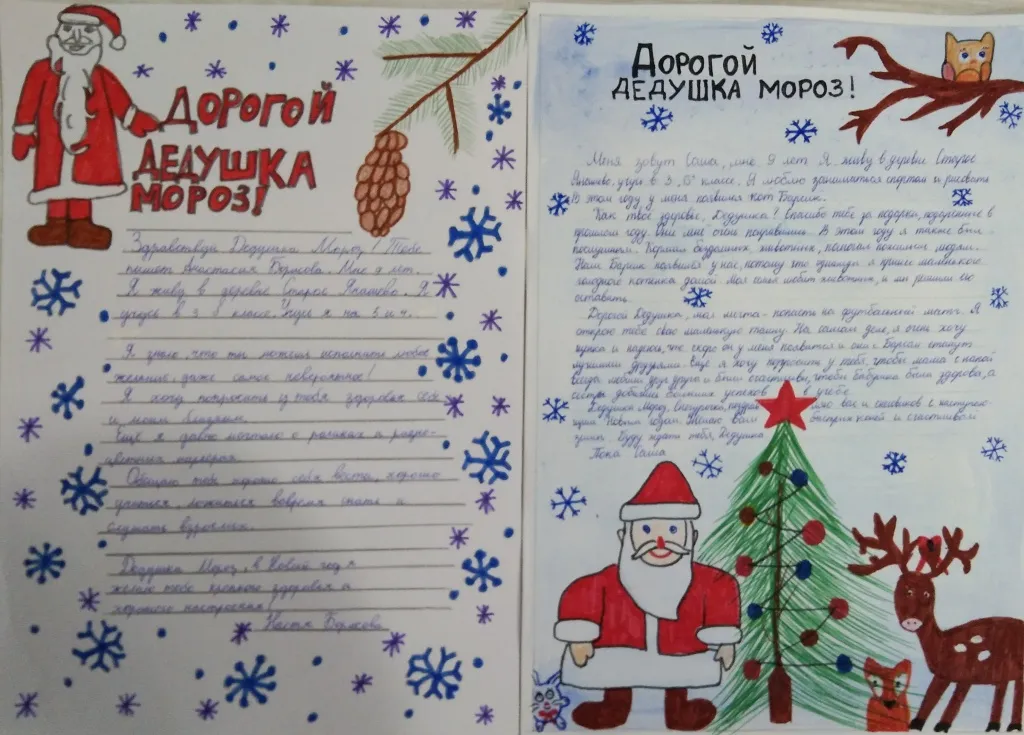 ДОРОГОЙ
ДЕДУШКА
МОРОЗ!
Здравствуй Дедушка Мороз! Тебе
пишет Анастасия Борисова. Мне 9 лет.
Я живу в деревне Старое Янашево. Я
учусь в 3 классе. Учусь я на 5 и 4.
Я знаю, что ты можешь исполнить любое
желание, даже самое невероятное!
Я хочу попросить у тебя здоровья себе
и моим близким.
Ещё я давно мечтаю о роликах и разно-
цветных маркерах.
Обещаю тебе хорошо себя вести, хорошо
учиться, ложиться вовремя спать и
слушать взрослых.
Дедушка Мороз, в Новый год я
желаю тебе крепкого здоровья и
хорошего настроения!
Настя Борисова
ДОРОГОЙ
ДЕДУШКА МОРОЗ!
Меня зовут Саша, мне 9 лет. Я живу в деревне Старое
учусь в 3 классе. Я люблю заниматься спортом и рисовать
В этом году у меня появился кот Барсик.
Как твоё здоровье, Дедушка? Спасибо тебе за подарки, подаренные в
прошлом году. Они мне очень понравились. В этом году я также был
послушным. Кормил бездомных животных, помогал пожилым людям.
Наш Барсик появился у нас, потому что однажды я принёс маленького
голодного котёнка домой. Моя семья любит животных, и мы решили его
оставить.
Дорогой Дедушка, моя мечта - попасть на футбольный матч. Я
открою тебе свою маленькую тайну. На самом деле, я очень хочу
щенка и надеюсь, что скоро он у меня появится и они с Барсиком станут
лучшими друзьями. Ещё я хочу попросить у тебя, чтобы мама с папой
всегда любили друг друга и были счастливы, чтобы бабушка была здорова, а
сестра добилась больших успехов в учёбе.
Дедушка Мороз, Снегурочка, вас и снеговиков с наступаю-
щим Новым годом. Желаю вам и счастливой
зимы. Буду ждать тебя, Дедушка
Пока Саша